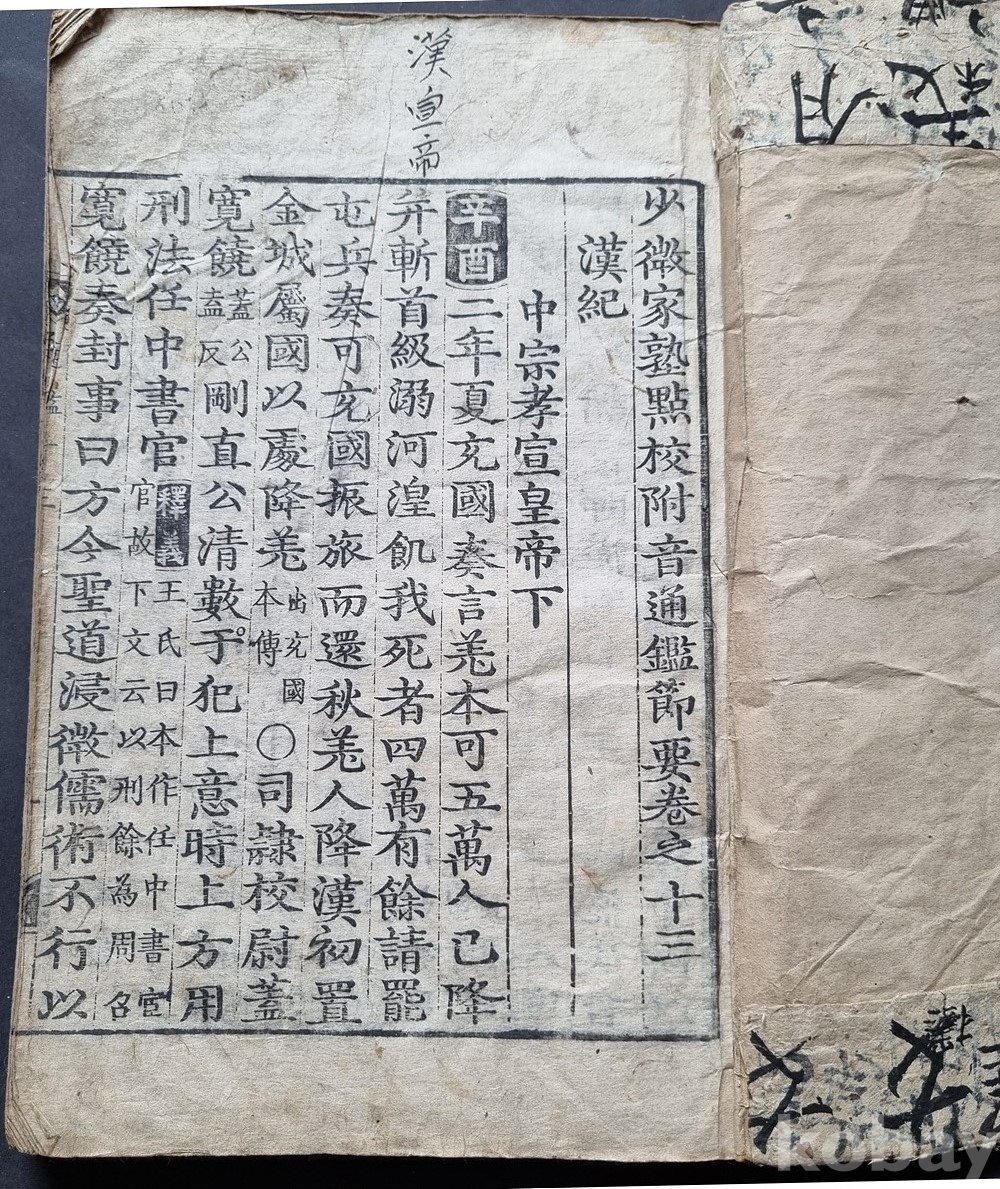 漢宣帝
少微家塾點校附音通鑑節要卷之十三
漢紀
中宗孝宣皇帝下
辛酉二年夏充國奏言羌本可五萬人已降
并斬首級溺河湟飢我死者四萬有餘請罷
屯兵奏可充國振旅而還秋羌人降漢初置
金城屬國以處降羌出充國本傳〇司隷校尉蓋
寬饒蓋公盍反剛直公清數于犯上意時上方用
刑法任中書官釋義王氏曰本作任中書宦官故下文云以刑餘為周召
寬饒奏封事曰方今聖道浸微儒術不行以
kobay